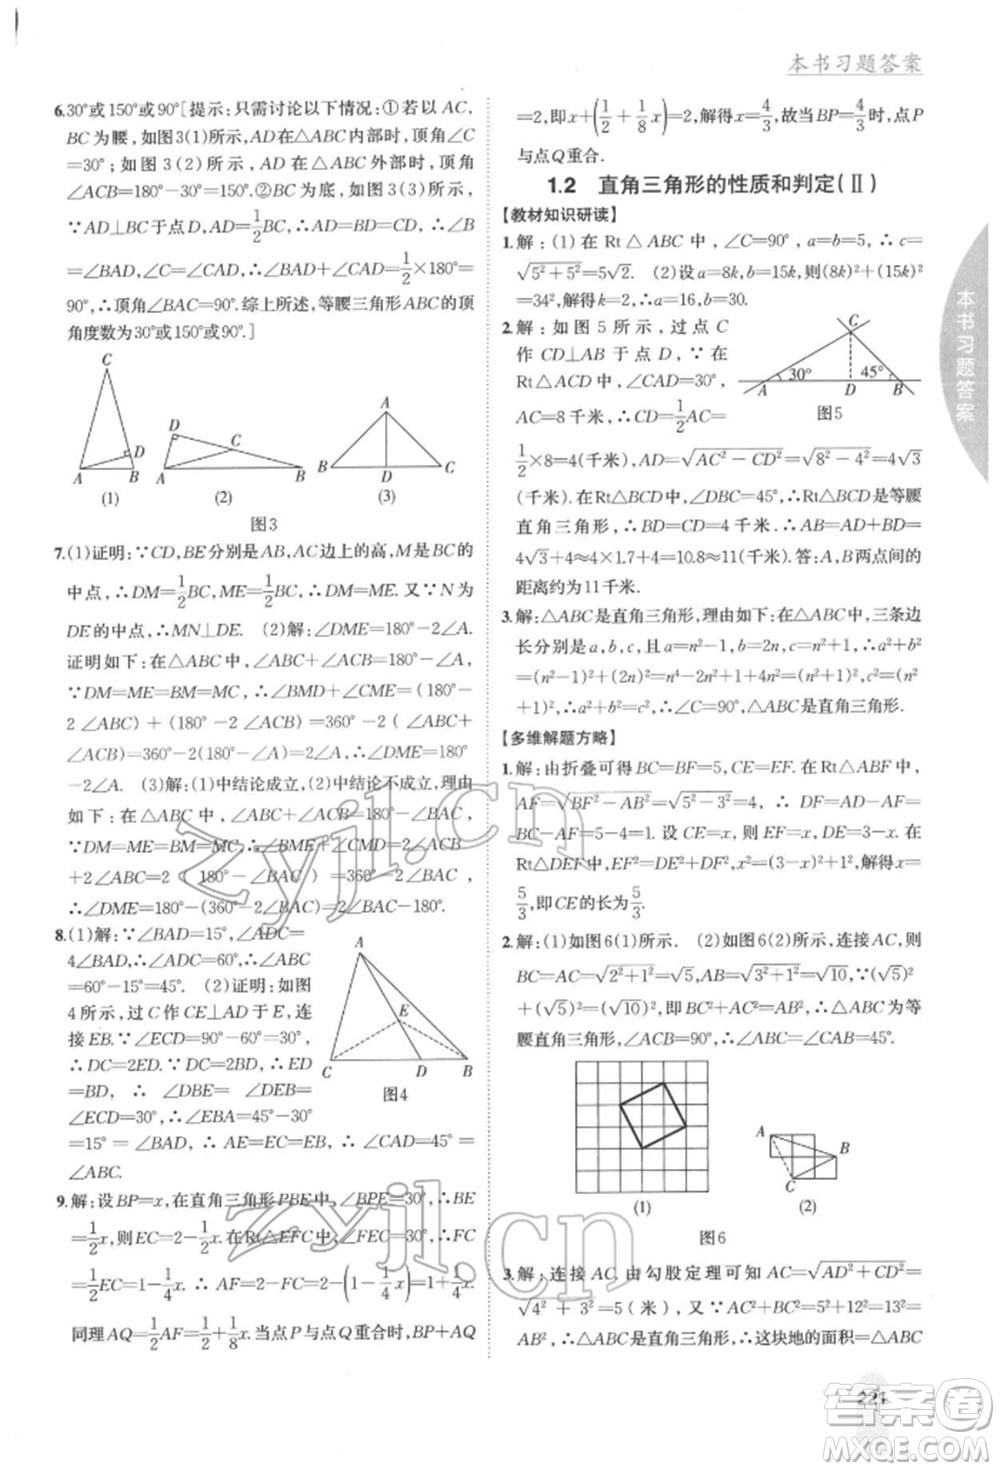 本书习题答案
6.30°或150°或90°[提示:只需讨论以下情况:①若以 AC,
BC为腰,如图3(1)所示,AD在△ABC内部时,顶角∠C
=30°;如图3(2)所示,AD在△ABC外部时,顶角
∠ACB=180°-30°=150°.②BC为底,如图3(3)所示,
∵AD⊥BC于点D,AD=1/2BC=BD=CD,∴∠B
=∠BAD,∠C=∠CAD,∴∠BAC=1/2×180°=
90°,∴顶角∠BAC=90°.综上所述,等腰三角形ABC的顶
角度数为30°或150°或90°.]
C
D
A B
(1)
D
C
A B
(2)
A
B D C
(3)
图3
7.(1)证明:∵CD,BE分别是AB,AC边上的高,M是BC的
中点,∴DM=1/2BC,ME=1/2BC,∴DM=ME.又∵N为
DE的中点,∴MN⊥DE. (2)解:∠DME=180°-2∠A.
证明如下:在△ABC中,∠ABC+∠ACB=180°-∠A.
∵DM=ME=BM=MC,∴∠BMD+∠CME=(180°-
2∠ABC)+(180°-2∠ACB)=360°-2(∠ABC+
∠ACB)=360°-2(180°-∠A)=2∠A,∴∠DME=180°
-2∠A. (3)解:(1)中结论成立,(2)中结论不成立,理由
如下:在△ABC中,∠ABC+∠ACB=180°-∠BAC.
∵DM=ME=BM=MC,∴∠BME+∠CMD=2∠ACB
+2∠ABC=2(180°-∠BAC)=360°-2∠BAC,
∴∠DME=180°-(360°-2∠BAC)=2∠BAC-180°.
8.(1)解:∵∠BAD=15°,∠ADC=
4∠BAD,∴∠ADC=60°,∴∠ABC
=60°-15°=45°. (2)证明:如图
4所示,过点C作CE⊥AD于E,连
接EB.∵∠ECD=90°-60°=30°,
∴DC=2ED.∵DC=2BD,
∴DB=DE.∴∠DBE=∠DEB=
∠ECD=30°,∴∠EBA=45°-30°
=15°=∠BAD,∴AE=EC=EB,∴∠CAD=45°=
∠ABC.
A
E
C D B
图4
9.解:设BP=x,在直角三角形PBE中,∠BPE=30°,∴BE
=1/2x,则EC=1-1/2x.在Rt△EFC中,∠FEC=30°,∴FC
=1/2EC=1/2-1/4x.∴AF=2-FC=2-(1/2-1/4x)=1+1/4x.
同理AQ=1/2AF=1/2+1/8x.当点P与点Q重合时,BP+AQ
=2,即x+(1/2+1/8x)=2,解得x=4/3,故当BP=4/3时,点P
与点Q重合.
1.2 直角三角形的性质和判定(Ⅱ)
【教材知识研读】
1.解:(1)在Rt△ABC中,∠C=90°,∵a=b=5,∴c=
√5²+5²=5√2. (2)设a=8k,b=15k,则(8k)²+(15k)²
=34²,解得k=2,∴a=16,b=30.
2.解:如图5所示,过点C
作CD⊥AB于点D,∵在
Rt△ACD中,∠CAD=30°,
AC=8千米,∴CD=1/2AC=
1/2×8=4(千米),AD=√AC²-CD²=√8²-4²=4√3
(千米).在Rt△BCD中,∵∠DBC=45°,∴Rt△BCD是等腰
直角三角形,∴BD=CD=4千米.∴AB=AD+BD=
4√3+4≈4×1.7+4=10.8≈11(千米).答:A,B两点间的
距离约为11千米.
C
30° 45°
A D B
图5
3.解:△ABC是直角三角形,理由如下:在△ABC中,三条边
长分别是a,b,c,且a=n²-1,b=2n,c=n²+1,∴a²+b²=
(n²-1)²+(2n)²=n⁴-2n²+1+4n²=n⁴+2n²+1=
(n²+1)²=c²,∴∠C=90°,△ABC是直角三角形.
【多维解题方略】
1.解:由折叠可得BC=BF=5,CE=EF.在Rt△ABF中,
AF=√BF²-AB²=√5²-3²=4.∴DF=AD-AF=
BC-AF=5-4=1.设CE=x,则EF=x,DE=3-x.在
Rt△DEF中,EF²=DE²+DF²,即x²=(3-x)²+1²,解得x=
5/3,即CE的长为5/3.
2.解:(1)如图6(1)所示. (2)如图6(2)所示,连接AC,则
BC=AC=√1²+2²=√5,AB=√3²+1²=√10,∵(√5)²
+(√5)²=(√10)²,即BC²+AC²=AB²,∴△ABC为等
腰直角三角形,∠ACB=90°,∴∠CAB=45°.
(1)
A
B
C
(2)
图6
3.解:连接AC.由勾股定理可知AC=√AD²+CD²=
√4²+3²=5(米),又∵AC²+BC²=5²+12²=13²=
AB²,∴△ABC是直角三角形,∴这块地的面积=△ABC
本书习题答案
221
zyjl.cn
zyjl.cn
答案圈
MXQE.COM